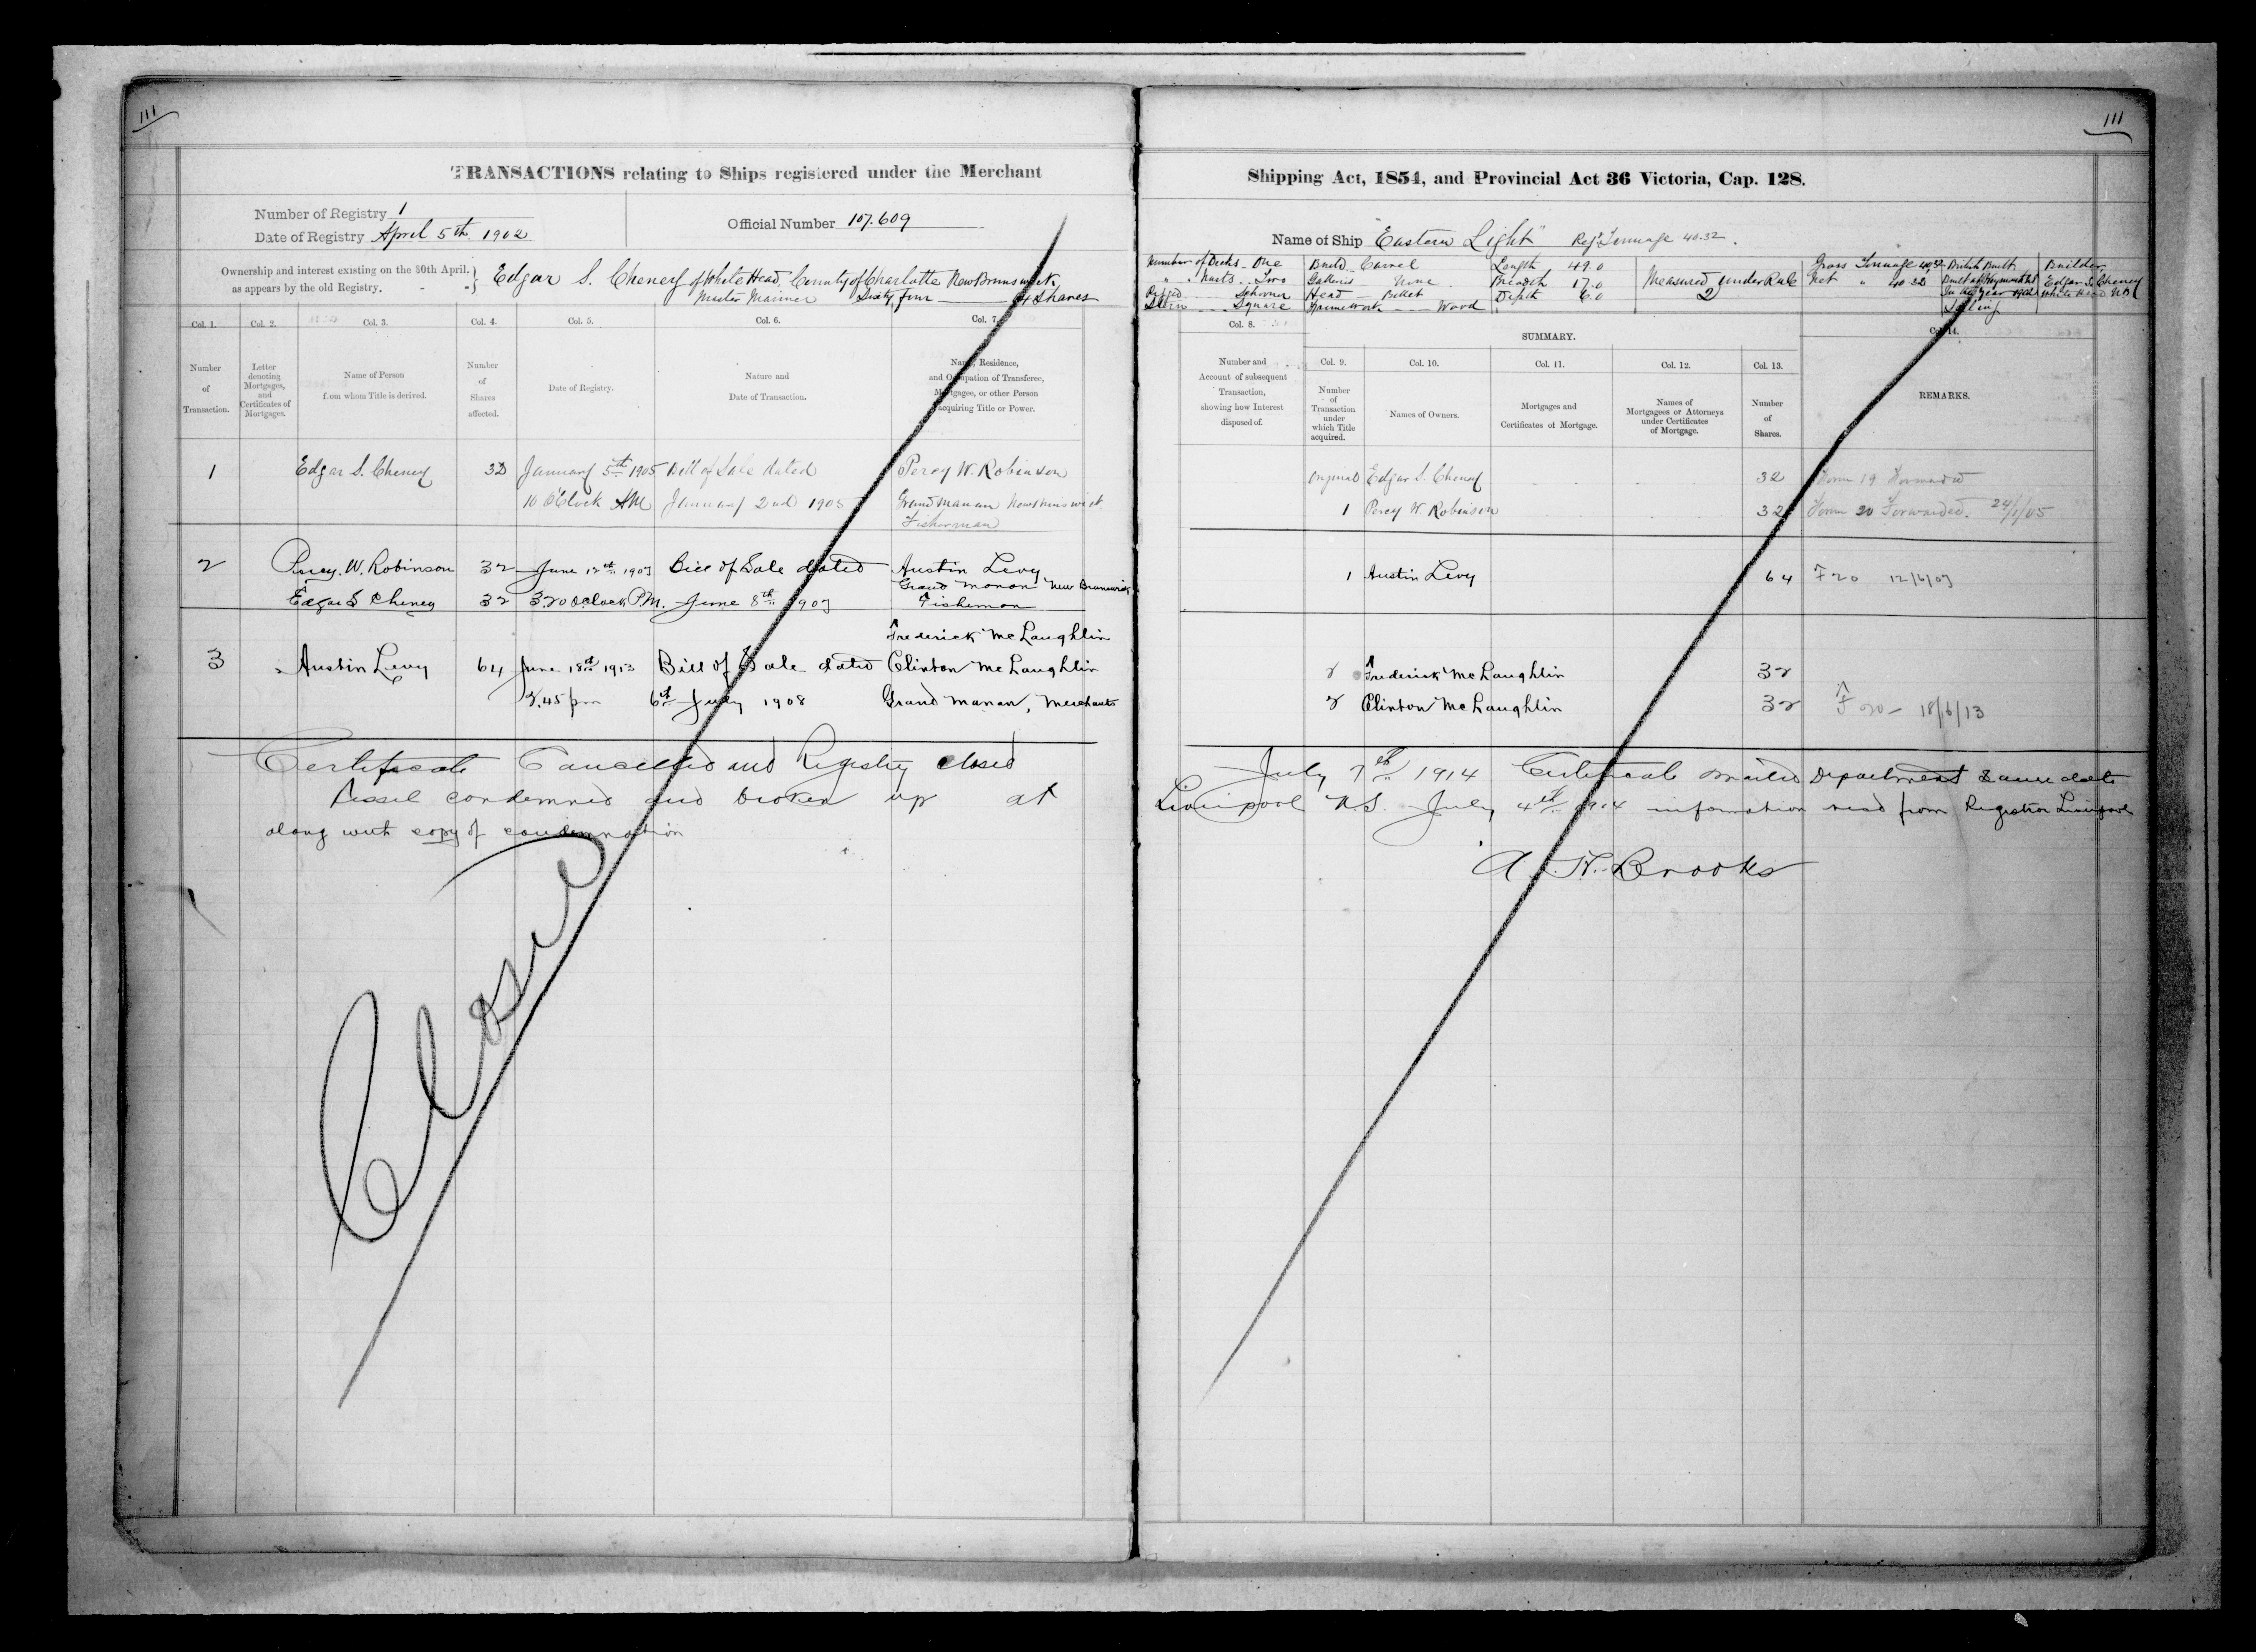 111
TRANSACTIONS relating to Ships registered under the Merchant
Number of Registry 1
Date of Registry April 5th 1902
Official Number 107.609
Ownership and interest existing on the 30th April.
as appears by the old Registry.
Edgar S. Cheney of White Head, County of Charlotte New Brunswick
Master Mariner Sixty four 64 Shares
Col. 1. Col. 2. Col. 3. Col. 4. Col. 5. Col. 6. Col. 7.
Number of Transaction.
Letter denoting Mortgages, and Certificates of Mortgages.
Name of Person from whom Title is derived.
Number of Shares affected.
Date of Registry.
Nature and Date of Transaction.
Name, Residence, and Occupation of Transferee, Mortgagee, or other Person acquiring Title or Power.
1 Edgar S. Cheney 32 January 5th 1905 Bill of Sale dated Percy W. Robinson
10 O'Clock AM January 2nd 1905 Grand Manan New Brunswick
Fisherman
2 Percy. W. Robinson 32 June 12th 1907 Bill of Sale dated Austin Levy
Grand Manan New Brunswick
Edgar S Cheney 32 3.20 oclock P.M. June 8th 1907 Fisherman
Frederick McLaughlin
3 Austin Levy 64 June 18th 1913 Bill of Sale dated Clinton McLaughlin
2.45 pm 6th July 1908 Grand Manan, Merchants
Certificate Cancelled and Registry closed
Vessel condemned and broken up at
along with copy of condemnation
Closed
111
Shipping Act, 1854, and Provincial Act 36 Victoria, Cap. 128.
Name of Ship "Eastern Light" Reg. Tonnage 40.32.
Number of Decks One Build Carvel Length 49.0 Gross Tonnage 40.32 British Built Builder
" " Masts Two Galleries None Breadth 17.0 Measured under Rule 2 Net " 40.32 Built at Weymouth NS Edgar S. Cheney
Rigged Schooner Head Billet Depth 6.0 In the year 1902 White Head NB
Stern Square Framework Wood Sailing
Col. 8. SUMMARY. Col. 14.
Number and Account of subsequent Transaction, showing how Interest disposed of.
Col. 9. Col. 10. Col. 11. Col. 12. Col. 13.
Number of Transaction under which Title acquired.
Names of Owners.
Mortgages and Certificates of Mortgage.
Names of Mortgagees or Attorneys under Certificates of Mortgage.
Number of Shares.
REMARKS.
Original Edgar S. Cheney 32 Form 19 Forwarded
1 Percy W. Robinson 32 Form 20 Forwarded. 24/1/05
1 Austin Levy 64 F 20 12/6/07
2 Frederick McLaughlin 32
2 Clinton McLaughlin 32 F 20 - 18/6/13
July 7th 1914 Certificate mailed Department same date
Liverpool N.S. July 4th 1914 information recd from Registrar Liverpool
A. H. Brooks